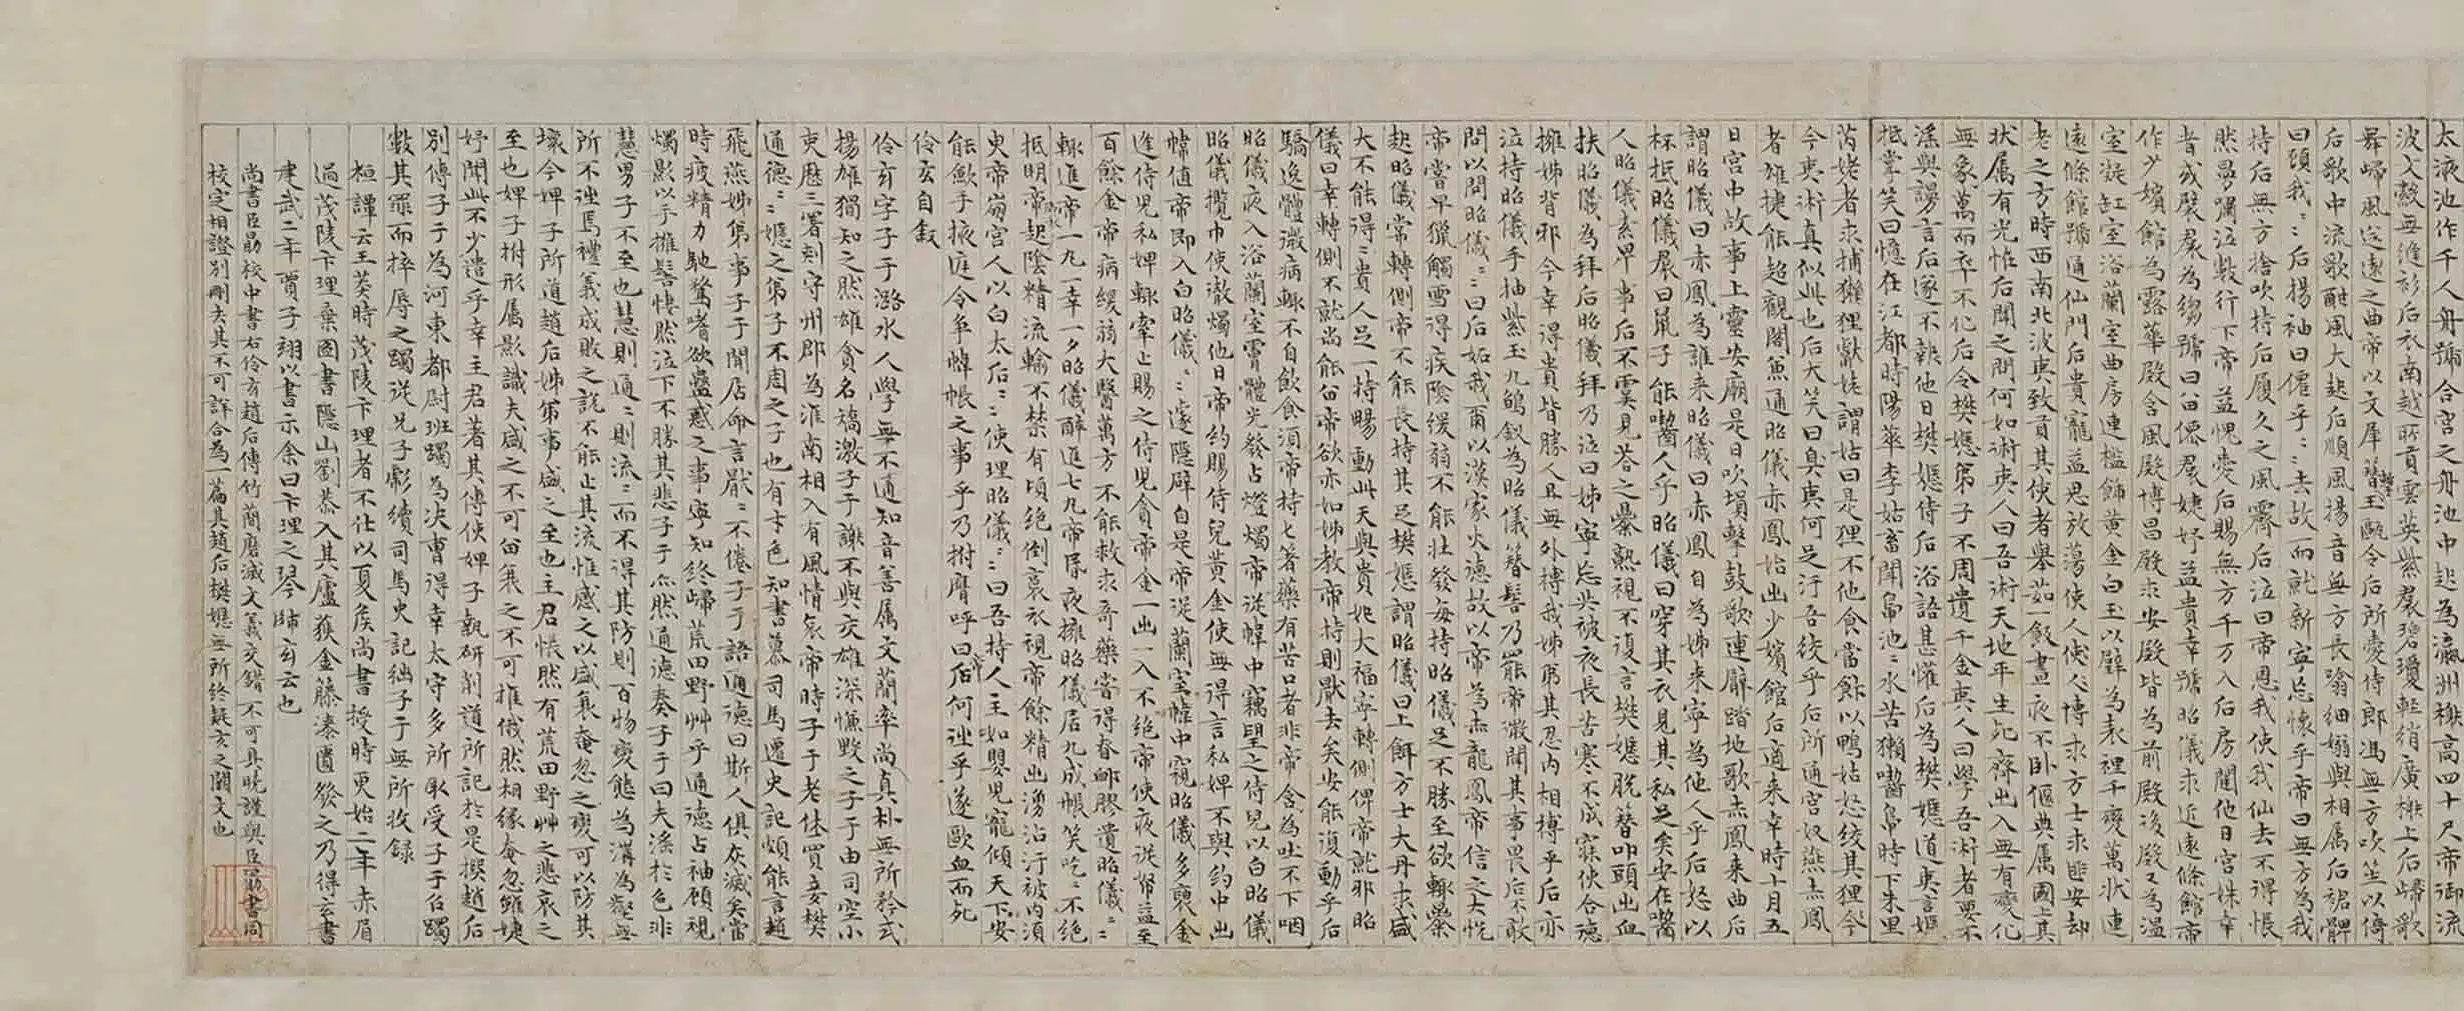 太液池作千人舟號合宮之舟池中起為瀛洲榭高四十尺帝御流
波文縠無縫衫后衣南越所貢雲英紫裙碧瓊輕綃廣榭上后歌歌
舞歸風送遠之曲帝以文犀簪擊玉甌令后所愛侍郎馮無方吹笙以倚
后歌中流歌酣風大起后順風揚音無方長噏細嫋與相屬后裙髀
曰顧我〻后揚袖曰僊乎〻去故而就新寧忘懷乎帝曰無方為我
持后無方捨吹持后履久之風霽后泣曰帝恩我使我仙去不得悵
然曼嘯泣數行下帝益愧愛后賜無方千万入后房闥他日宮姝幸
者或襞裙為縐號曰留僊裙婕妤益貴幸號昭儀求近遠條館帝
作少嬪館為露華殿含風殿博昌殿求安殿皆為前殿後殿又為溫
室凝缸室浴蘭室曲房連檻飾黃金白玉以璧為表裡千變萬狀連
遠條館號通仙門后貴寵益思放蕩使人博求方士求匪安却
老之方時西南北波夷致貢其使者舉茹一飯晝夜不卧偃典屬國上其
狀屬有光恠后聞之問何如術夷人曰吾術天地平生死齊出入無有變化
無象萬而卒不化后令樊嫕弟子不周遺千金夷人曰學吾術者要不
淫與謾言后遂不報他日樊嫕侍后浴語甚懽后為樊嫕道夷言嫕
抵掌笑曰憶在江都時陽華李姑畜鬪鴨池〻水苦獺嚙鴨時下朱里
芮姥者求捕獺狸獻姥謂姑曰是狸不他食當飯以鴨姑怒絞其狸今
今夷術真似此也后大笑曰臭夷何足汙吾絞乎后所通宮奴燕赤鳳
者雄捷能超觀閣兼通昭儀赤鳳始出少嬪館后適来幸時十月五
日宮中故事上靈安廟是日吹塤擊鼓歌連臂踏地歌赤鳳来曲后
謂昭儀曰赤鳳為誰来昭儀曰赤鳳自為姊来寧為他人乎后怒以
杯抵昭儀裙曰鼠子能嚙人乎昭儀曰穿其衣見其私足矣安在嚙
人昭儀素卑事后不虞見荅之暴熟視不復言樊嫕脫簪叩頭出血
扶昭儀為拜后昭儀拜乃泣曰姊寧忘共被夜長苦寒不成寐使合德
擁姊背邪今幸得貴皆勝人且無外搏我姊弟其忍內相搏乎后亦
泣持昭儀手抽紫玉九鶵釵為昭儀簪髻乃罷帝微聞其事畏后不敢
問以問昭儀〻曰后妬我爾以漢家火德故以帝為赤龍鳳帝信之大悅
帝嘗早獵觸雪得疾陰緩弱不能壮發每持昭儀足不勝至欲輒暴
起昭儀常轉側帝不能長持其足樊嫕謂昭儀曰上餌方士大丹求盛
大不能得〻貴人足一持暢動此天與貴妃大福寧轉側俾帝就邪昭
儀曰幸轉側不就尚能留帝欲亦如姊教帝持則厭去矣安能復動乎后
驕逸體微病輒不自飲食須帝持匕箸藥有苦口者非帝含為吐不下咽
昭儀夜入浴蘭室膏體光發占燈燭帝從幃中竊望之侍兒以白昭儀
昭儀攬巾使澈燭他日帝約賜侍兒黃金使無得言私婢不與約中出
幃值帝即入白昭儀〻遽隱辟自是帝從蘭室幃中窺昭儀多褏金
逢侍兒私婢輒牽止賜之侍兒貪帝金一出一入不絕帝使夜從帑益至
百餘金帝病緩弱大醫萬方不能救求奇藥嘗得春䘒膠遺昭儀〻
輒進帝一丸一幸一夕昭儀醉進七丸帝昏夜擁昭儀居九成帳笑吃〻不絕
抵明帝起御衣陰精流輸不禁有頃絕倒裛衣視帝餘精出湧沾汙被內須
臾帝崩宮人以白太后〻使理昭儀〻曰吾持人主如嬰兒寵傾天下安
能歛手掖庭令争帷帳之事乎乃拊膺呼曰帝何往乎遂歐血而死
伶玄自敘
伶玄字子于潞水人學無不通知音善属文蕳率尚真朴無所矜式
揚雄獨知之然雄貪名矯激子于謝不與交雄深慊毀之子于由司空小
吏歷三署刺守州郡為淮南相入有風情哀帝時子于老休買妾樊
通德〻嫕之弟子不周之子也有才色知書慕司馬遷史記頗能言趙
飛燕姊弟事子于閒居命言厭〻不倦子于語通德曰斯人俱灰滅矣當
時疲精力馳騖嗜欲蠱惑之事寧知終歸荒田野艸乎通德占袖顧視
燭影以手擁髻悽然泣下不勝其悲子于亦然通德奏子于曰夫淫於色非
慧男子不至也慧則通〻則流〻而不得其防則百物變態為溝為壑無
所不往焉禮義成敗之說不能止其流惟感之以盛衰奄忽之變可以防其
壞今婢子所道趙后姊弟事盛之至也主君悵然有荒田野艸之悲哀之
至也婢子拊形属影識夫盛之不可留衰之不可推俄然相緣奄忽雖婕
妤聞此不少遣乎幸主君著其傳使婢子執研削道所記於是撰趙后
別傳子于為河東都尉班躅為决曹得幸太守多所取受子于召躅
數其罪而捽辱之躅從兄子彪續司馬史記絀子于無所收録
桓譚云王莽時茂陵卞理者不仕以夏矦尚書授時更始二年赤眉
過茂陵卞理棄圖書隱山劉恭入其廬獲金藤漆匱發之乃得玄書
建武二年賈子翊以書示余曰卞理之琴師玄云也
尚書臣勗校中書右伶玄趙后傳竹蕳磨滅文義交錯不可具曉謹與臣勗書同
校定相證別刪去其不可詳合為一篇其趙后樊嫕無所終疑玄之闕文也